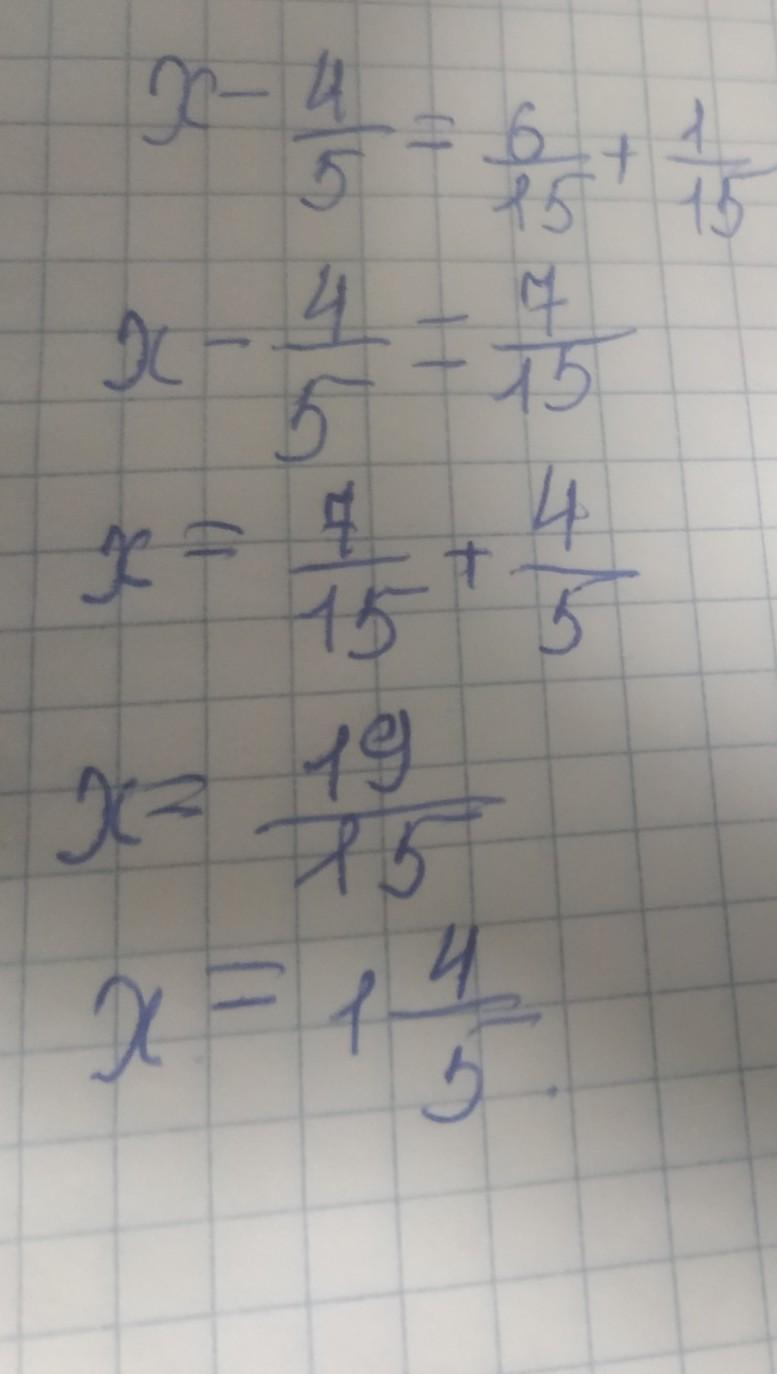 x - 4/5 = 6/15 + 1/15
x - 4/5 = 7/15
x = 7/15 + 4/5
x = 19/15
x = 1 4/5.